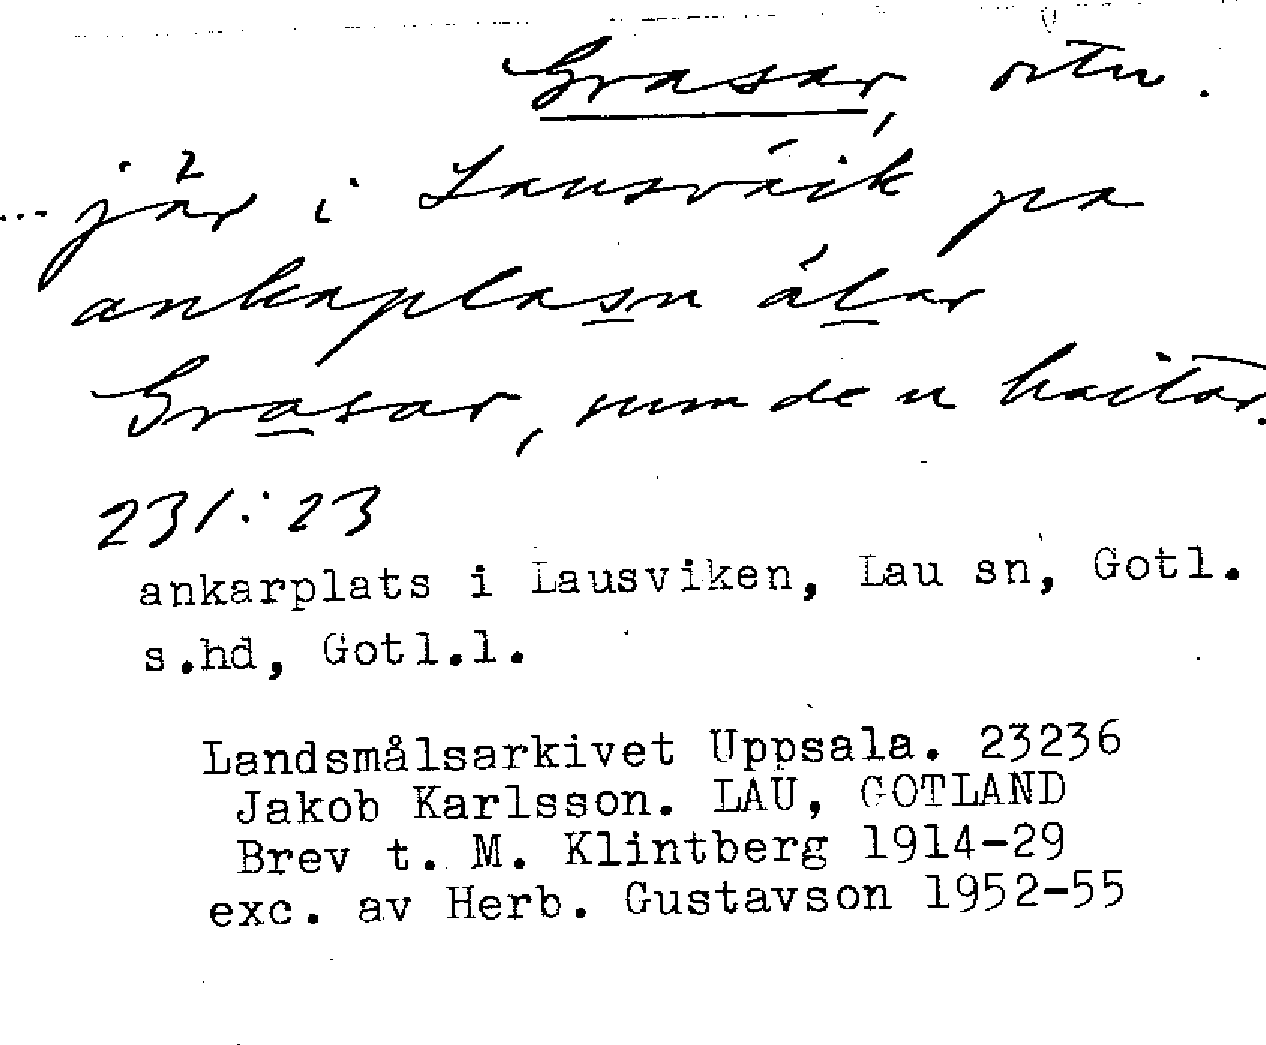 Grasar, ortn.
... jär i Lausváik pa
ankaplasn álar
Grasar, sum de n haitar.
231:23
ankarplats i Lausviken, Lau sn, Gotl.
s.hd, Gotl.l.
Landsmålsarkivet Uppsala. 23236
Jakob Karlsson. LAU, GOTLAND
Brev t. M. Klintberg 1914-29
exc. av Herb. Gustavson 1952-55